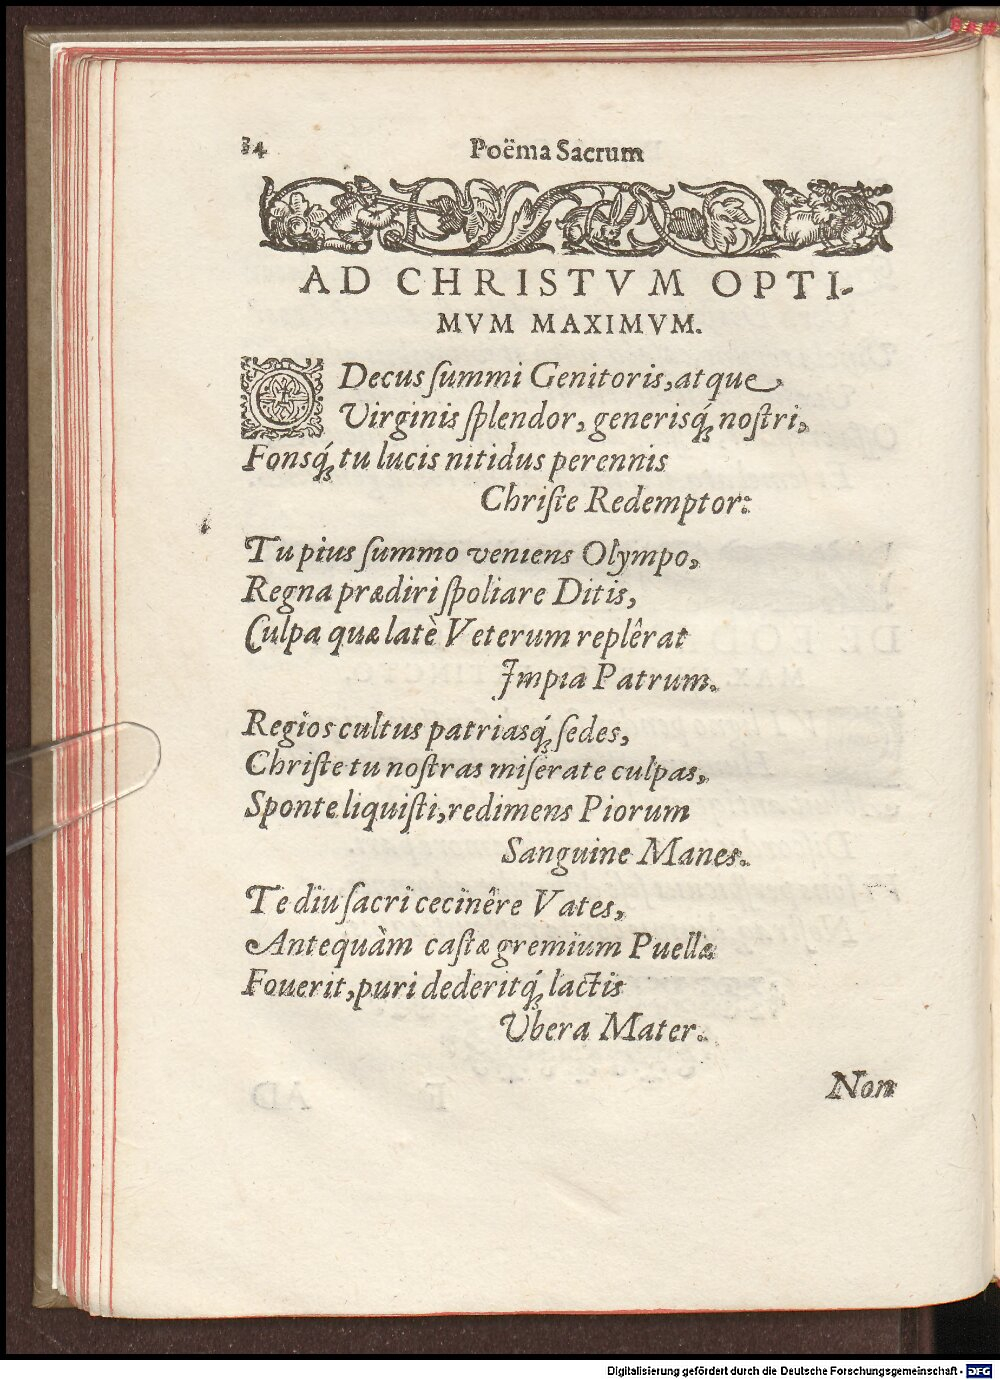 34 Poëma Sacrum
AD CHRISTVM OPTI-
MVM MAXIMVM.
O Decus ſummi Genitoris, atque
Virginis ſplendor, generisq́ꝫ noſtri,
Fonsq́ꝫ tu lucis nitidus perennis
Chriſte Redemptor:
Tu pius ſummo veniens Olympo,
Regna prædiri ſpoliare Ditis,
Culpa quæ latè Veterum replêrat
Impia Patrum.
Regios cultus patriasq́ꝫ ſedes,
Chriſte tu noſtras miſerate culpas,
Sponte liquiſti, redimens Piorum
Sanguine Manes.
Te diu ſacri cecinêre Vates,
Antequàm caſtæ gremium Puellæ
Fouerit, puri dederitq́ꝫ lactis
Vbera Mater.
Non
Digitalisierung gefördert durch die Deutsche Forschungsgemeinschaft - DFG